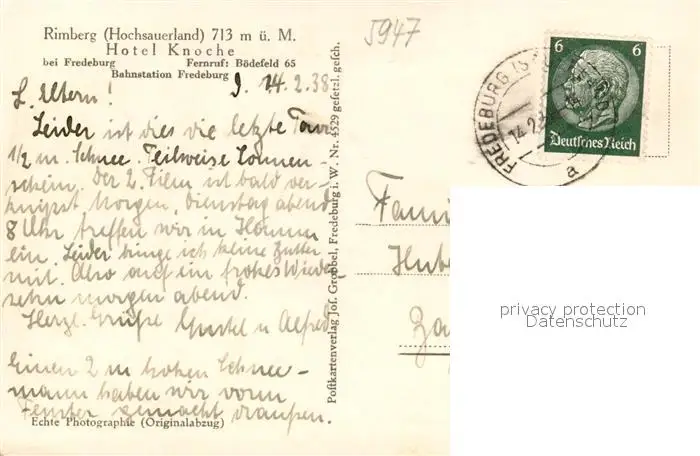 Rimberg (Hochsauerland) 713 m ü. M.
Hotel Knoche
bei Fredeburg Fernruf: Bödefeld 65
Bahnstation Fredeburg
14.2.38
L. Eltern!
Leider ist dies die letzte Tour
1/2 m. Schnee. Teilweise Sonnen-
schein. Der 2. Film ist bald ver-
knipst Morgen, Dienstag abend
8 Uhr treffen wir in Hamm
ein. Leider bringe ich keine Butter
mit. Also auf ein frohes Wieder-
sehn morgen abend.
Herzl. Grüße Gustel u Alfred
Einen 2 m hohen Schnee-
mann haben wir vorm
Fenster gemacht draußen.
Echte Photographie (Originalabzug)
Postkartenverlag Jos. Grobbel, Fredeburg i. W. Nr. 4529 gesetzl. gesch.
5947
FREDEBURG
14.2.
a
6 6
Deutsches Reich
Fami
Hube
privacy protection
Datenschutz